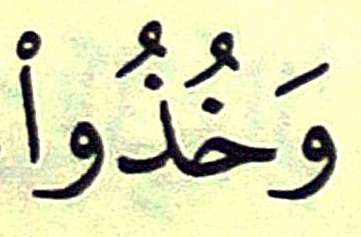 وَخُذُواْ